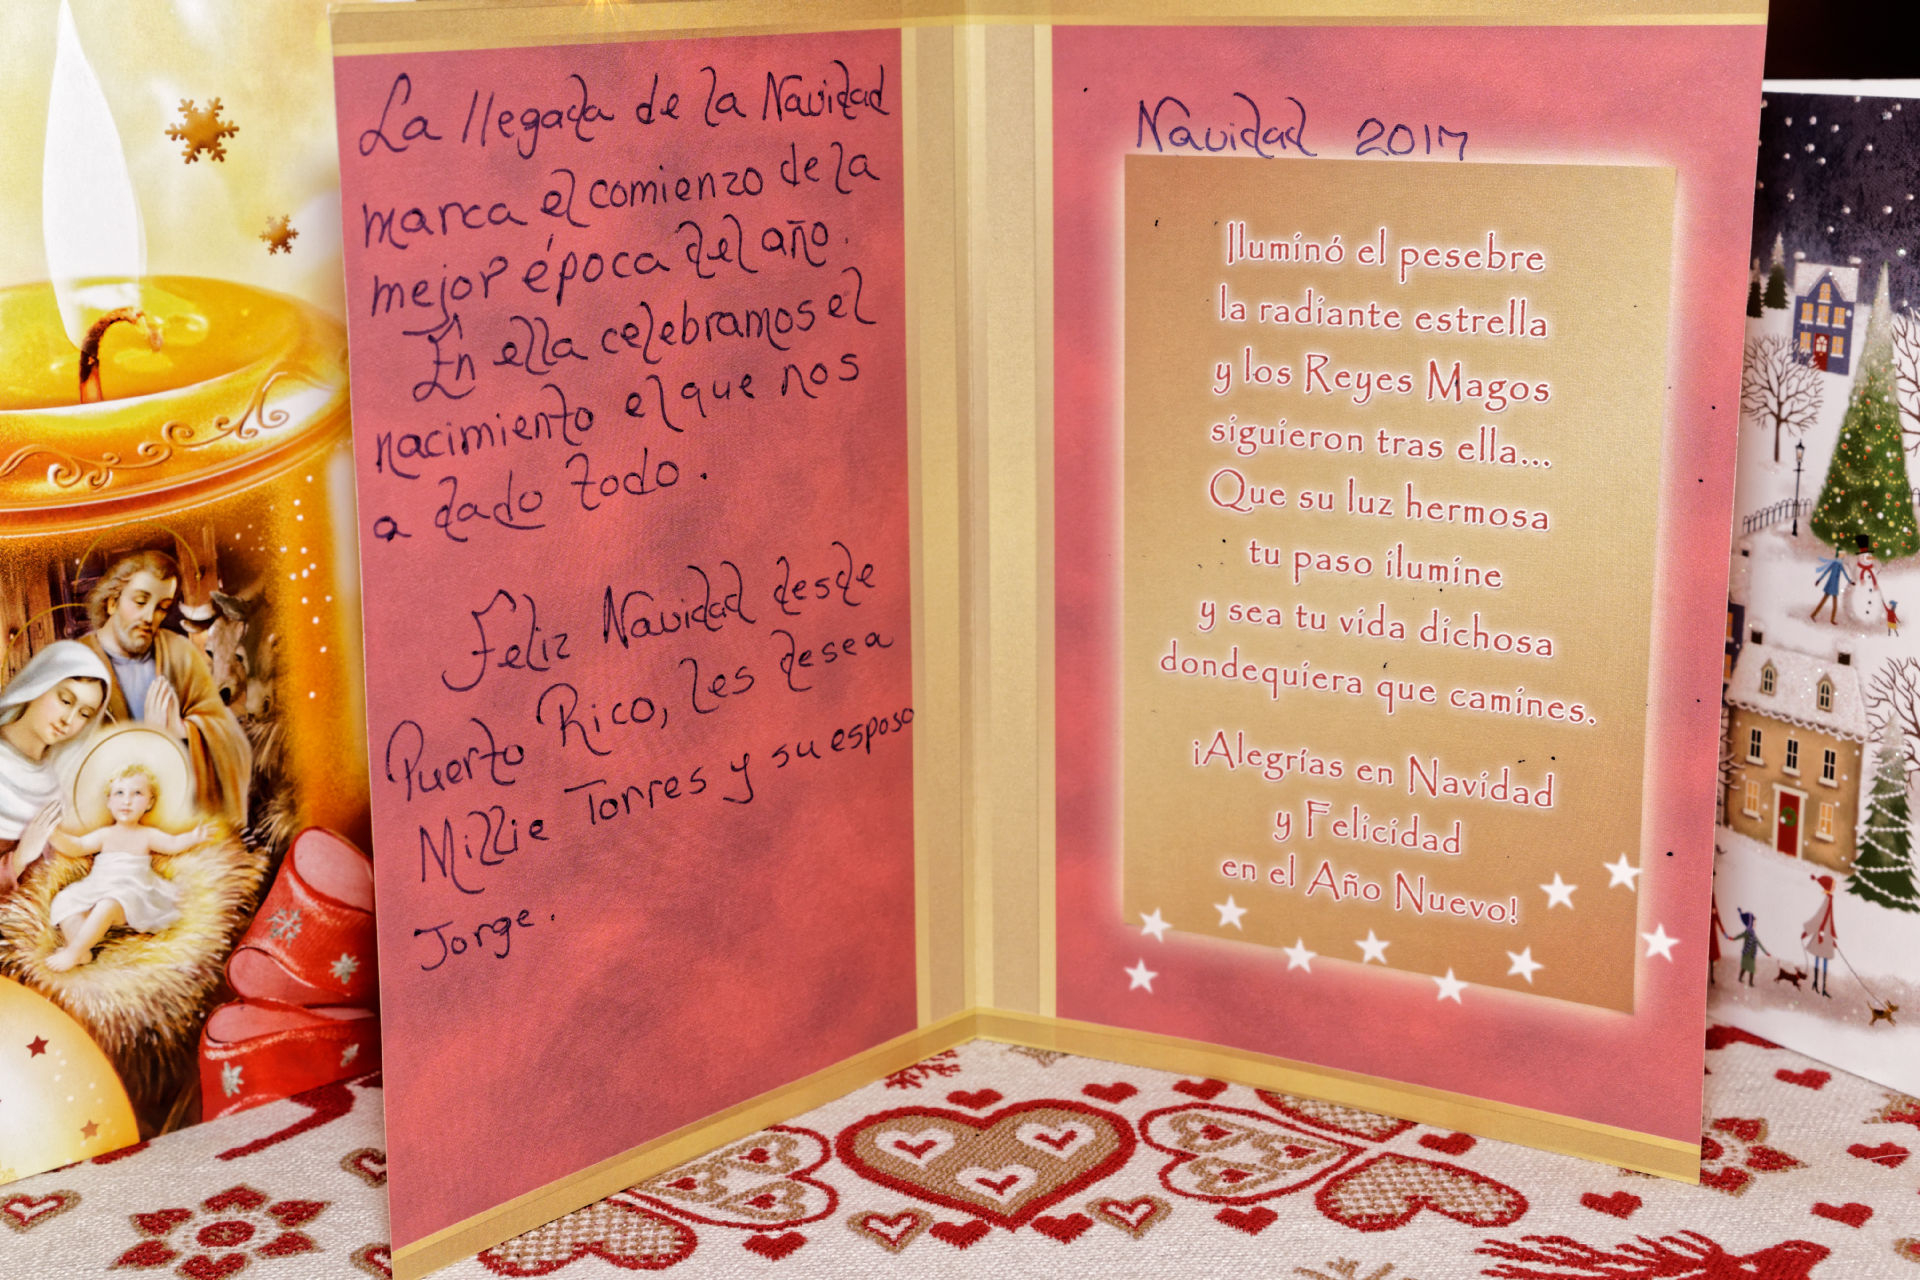 La llegada de la Navidad
marca el comienzo de la
mejor época del año.
En ella celebramos el
nacimiento el que nos
a dado todo.
Feliz Navidad desde
Puerto Rico, les desea
Millie Torres y su esposo
Jorge.
Navidad 2017
Iluminó el pesebre
la radiante estrella
y los Reyes Magos
siguieron tras ella...
Que su luz hermosa
tu paso ilumine
y sea tu vida dichosa
dondequiera que camines.
¡Alegrías en Navidad
y Felicidad
en el Año Nuevo!